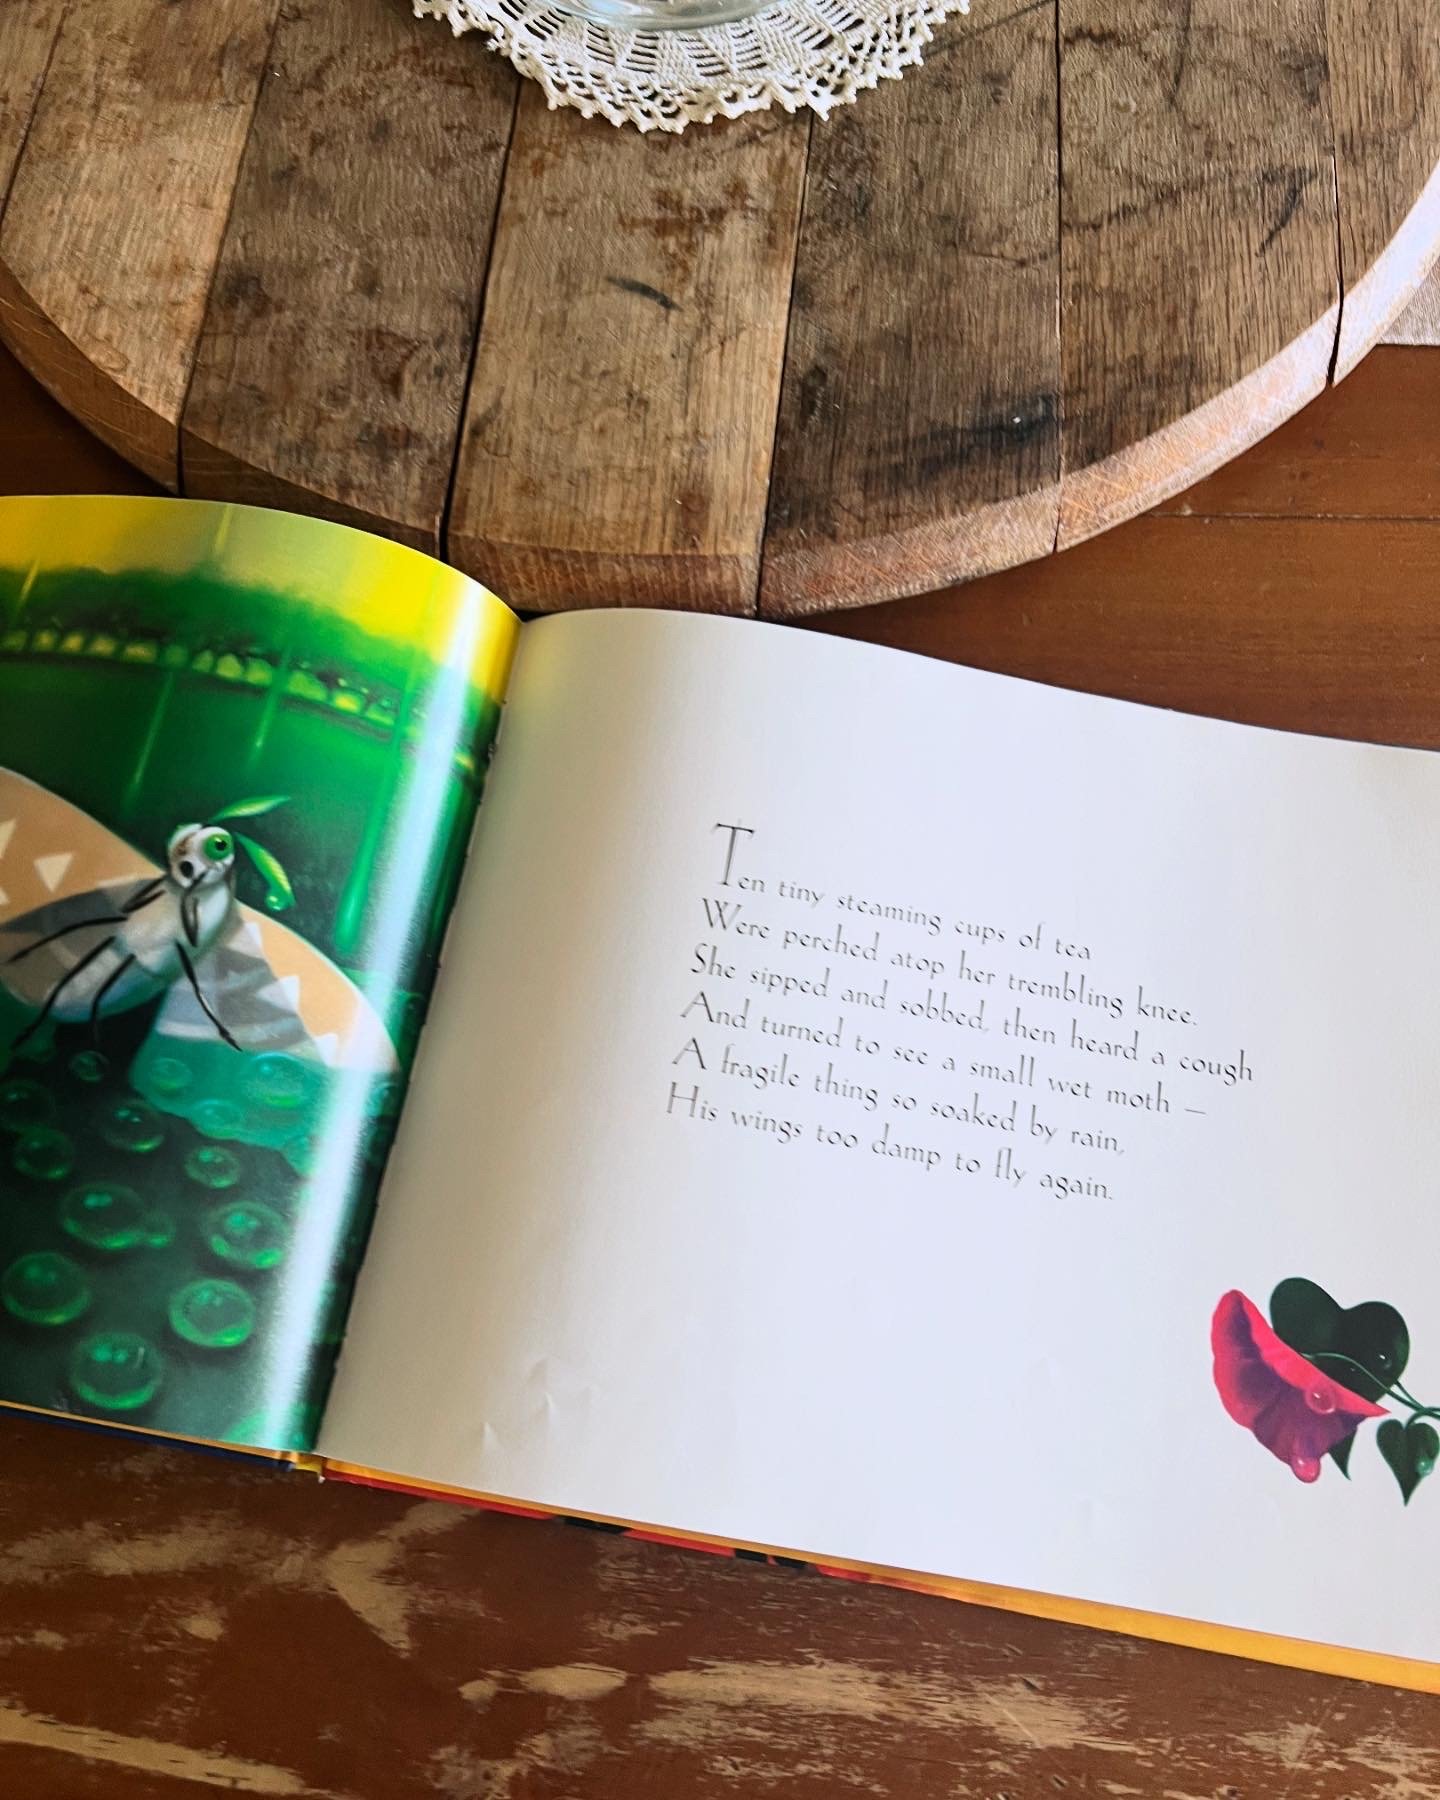 Ten tiny steaming cups of tea
Were perched atop her trembling knee.
She sipped and sobbed, then heard a cough
And turned to see a small wet moth –
A fragile thing so soaked by rain,
His wings too damp to fly again.